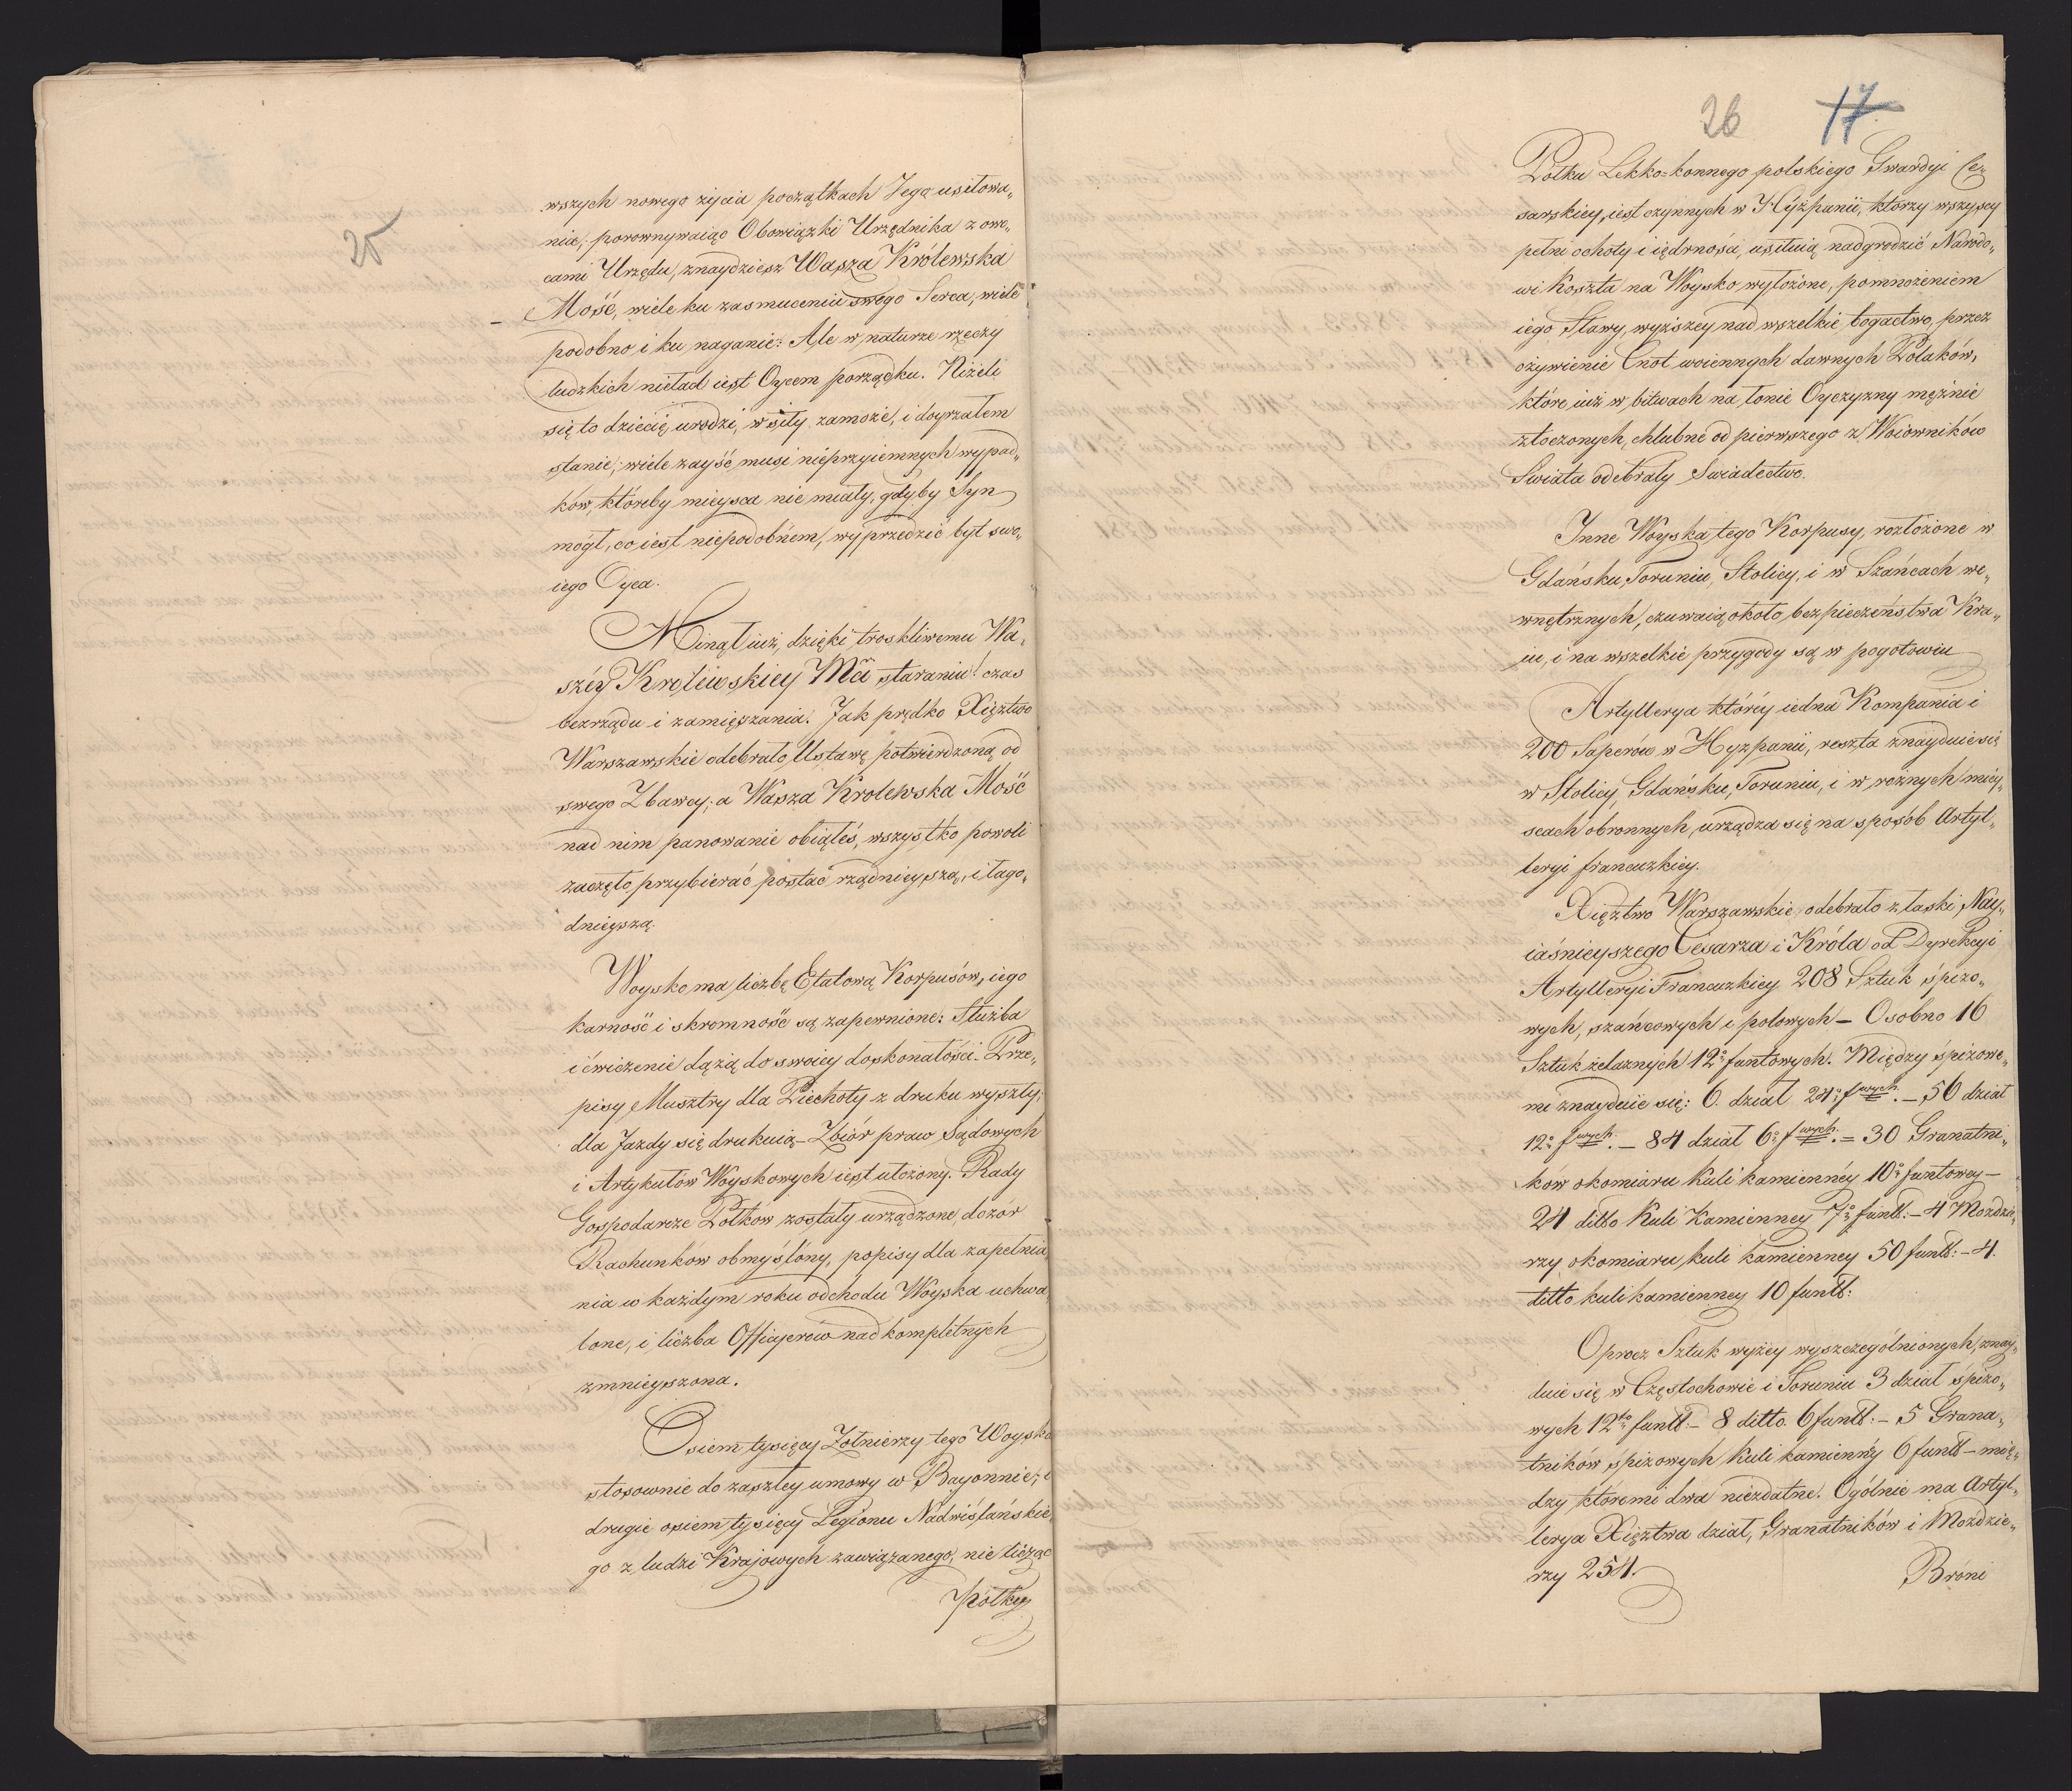 25
wszych nowego życia początkach Jego usiłowa„
nia, porownywaiąc Obowiązki Urzędnika z owo„
cami Urzędu, znaydziesz Wasza Królewska
Mość, wiele ku zasmuceniu swego Serca, wiele
podobno i ku naganie: Ale w naturze rzeczy
ludzkich nieład iest Oycem porządku. Niżeli
się to dziecię urodzi, w siły zamoże, i doyrzałem
stanie; wiele zayść musi nieprzyiemnych wypad„
ków, któreby mieysca nie miały, gdyby Syn
mógł, co iest niepodobném, wyprzedzić byt swo„
iego Oyca.
Minął iuż, dzięki troskliwemu Wa„
széy Królewskiey Mci staraniu! czas
bezrządu i zamięszania. Jak prędko Xięztwo
Warszawskie odebrało Ustawę potwierdzoną od
swego Zbawcy; a Wasza Krolewska Mość
nad nim panowanie obiąłeś, wszystko powoli
zaczęto przybierać postać rządnieyszą, i łago„
dnieyszą.
Woysko ma liczbę Etatową Korpusów, iego
karność i skromność są zapewnione: Służba
i ćwiczenie dążą do swoiey doskonałości. Prze„
pisy Musztry dla Piechoty z druku wyszły;
dla Jazdy się drukuią – Zbiór praw Sądowych
i Artykułów Woyskowych iest ułożony. Rady
Gospodarcze Półkow zostały urządzone, dozór
Rachunków obmyślóny, popisy dla zapełnia„
nia w każdym roku odchodu Woyska uchwa„
lone, i liczba Officyerów nad kompletnych
zmnieyszona.
Osiem tysięcy Żołnierzy tego Woyska
stosownie do zaszłey umowy w Bayonnie, i
drugie osiem tysięcy Legionu Nadwiślańskie„
go z ludzi Krajowych zawiązanego, nie licząc
Półku
26 17
Półku Lekko=konnego polskiego Gwardyi Ce„
sarskiey, iest czynnych w Hyżpanii, którzy wszyscy
pełni ochoty i iędrności, usiłuią nadgrodzić Narodo„
wi Koszta na Woysko wyłożóne, pomnożeniem
iego Sławy, wyższey nad wszelkie bogactwo, przez
ożywienie Cnot woiennych dawnych Polaków,
które iuż w bitwach na łonie Oyczyzny mężnie
złoczonych, chlubne od pierwszego z Woiowników
Swiata odebrały Swiadectwo.
Inne Woyska tego Korpusy, rozłożone w
Gdańsku, Toruniu, Stolicy, i w Szańcach we„
wnętrznych, czuwaią około bezpieczeństwa Kra„
iu, i na wszelkie przygody są w pogotowiu
Artyllerya któréy iedna Kompania i
200 Saperów w Hyzpanii, reszta znayduie się
w Stolicy, Gdańsku, Toruniu, i w rożnych miey„
scach obronnych, urządza się na sposób Artyl„
leryi francuzkiey.
Xięztwo Warszawskie odebrało z łaski Nay„
iaśnieyszego Cesarza i Króla od Dyrekcyi
Artylleryi Francuzkiey 208 Sztuk śpiżo„
wych, szańcowych i polowych – Osobno 16
Sztuk żelaznych 12o funtowych. Między śpiżowe„
mi znayduie się: 6. dział 24o fwych. – 56 dział
12o fwych. – 84 dział 6o fwych. = 30 Granatni„
ków okomiaru Kuli kamiennéy 10o funtowey –
24 ditto Kuli Kamienney 7o funt: – 4 Moździe„
rzy okomiaru kuli kamienney 50 funt: – 4.
ditto kuli kamienney 10 funt:
Oprocz Sztuk wyżey wyszczególnionych, znay„
duie się w Częstochowie i Toruniu 3 dział śpiżo„
wych 12to funt: – 8 ditto. 6 funt: – 5 Grana„
tników śpiżowych Kuli kamiennéy 6 funt – mię„
dzy ktoremi dwa niezdatne. Ogólnie ma Artyl„
lerya Xięztwa dział, Granatników i Moździe„
rzy 254.
Bróni